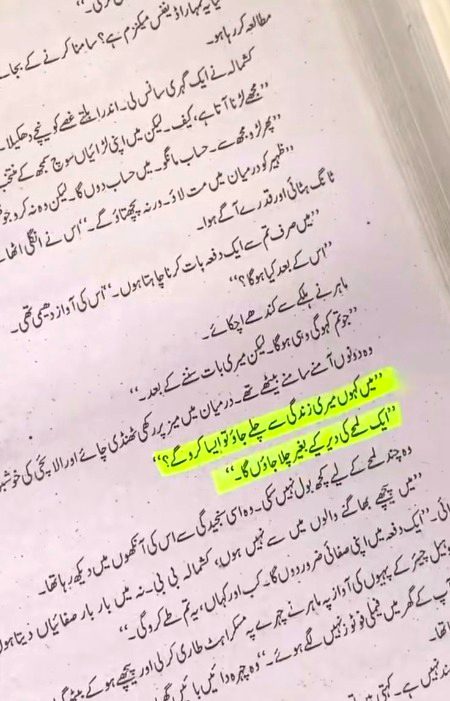 کیا یہ تمہارا ڈیفنس میکنزم ہے؟ سامنا کرنے کے بجائے
مطالعہ کر رہا ہو۔
کشمالہ نے ایک گہری سانس لی۔ اندر ابلتے غصے کو نیچے دھکیلا۔
”مجھے لڑنا آتا ہے، کیف۔ لیکن میں اپنی لڑائیاں سوچ سمجھ کے منتخب
”پھر لڑو مجھ سے۔ حساب مانگو۔ میں حساب دوں گا۔ لیکن وہ نہ کرو جو
”ظہیر کو درمیان میں مت لاؤ۔ ورنہ پچھتاؤ گے۔“ اس نے انگلی اٹھا
ٹانگ ہٹائی اور قدرے آگے ہوا۔
”میں صرف تم سے ایک دفعہ بات کرنا چاہتا ہوں۔“ اس کی آواز دھیمی تھی۔
”اس کے بعد کیا ہوگا؟“
ماہر نے ہلکے سے کندھے اچکائے۔
”جو تم کہو گی وہی ہوگا۔ لیکن میری بات سننے کے بعد۔“
وہ دونوں آمنے سامنے بیٹھے تھے۔ درمیان میں میز پر رکھی ٹھنڈی چائے اور الائچی کی خوشبو
”میں کہوں میری زندگی سے چلے جاؤ تو ایسا کرو گے؟“
”ایک لمحے کی دیر کے بغیر چلا جاؤں گا۔“
وہ چند لمحے کے لیے کچھ بول نہیں سکی۔ وہ اسی سنجیدگی سے اس کی آنکھوں میں دیکھ رہا تھا۔
”میں پیچھے بھاگنے والوں میں سے نہیں ہوں، کشمالہ بی بی۔ نہ میں بار بار صفائیاں دیتا ہوں
”ایک دفعہ میں اپنی صفائی ضرور دوں گا۔ کب اور کہاں، یہ تم طے کرو گی۔“
چیئر کے پہیوں کی آواز پہ ماہر نے چہرے پہ مسکراہٹ طاری کر لی اور پیچھے ہو کے بیٹھ
آپ کے گھر میں فیملی فوٹوز نہیں لگے ہوئے۔“ وہ چہرہ دائیں بائیں
تھا۔
نہیں ہے۔